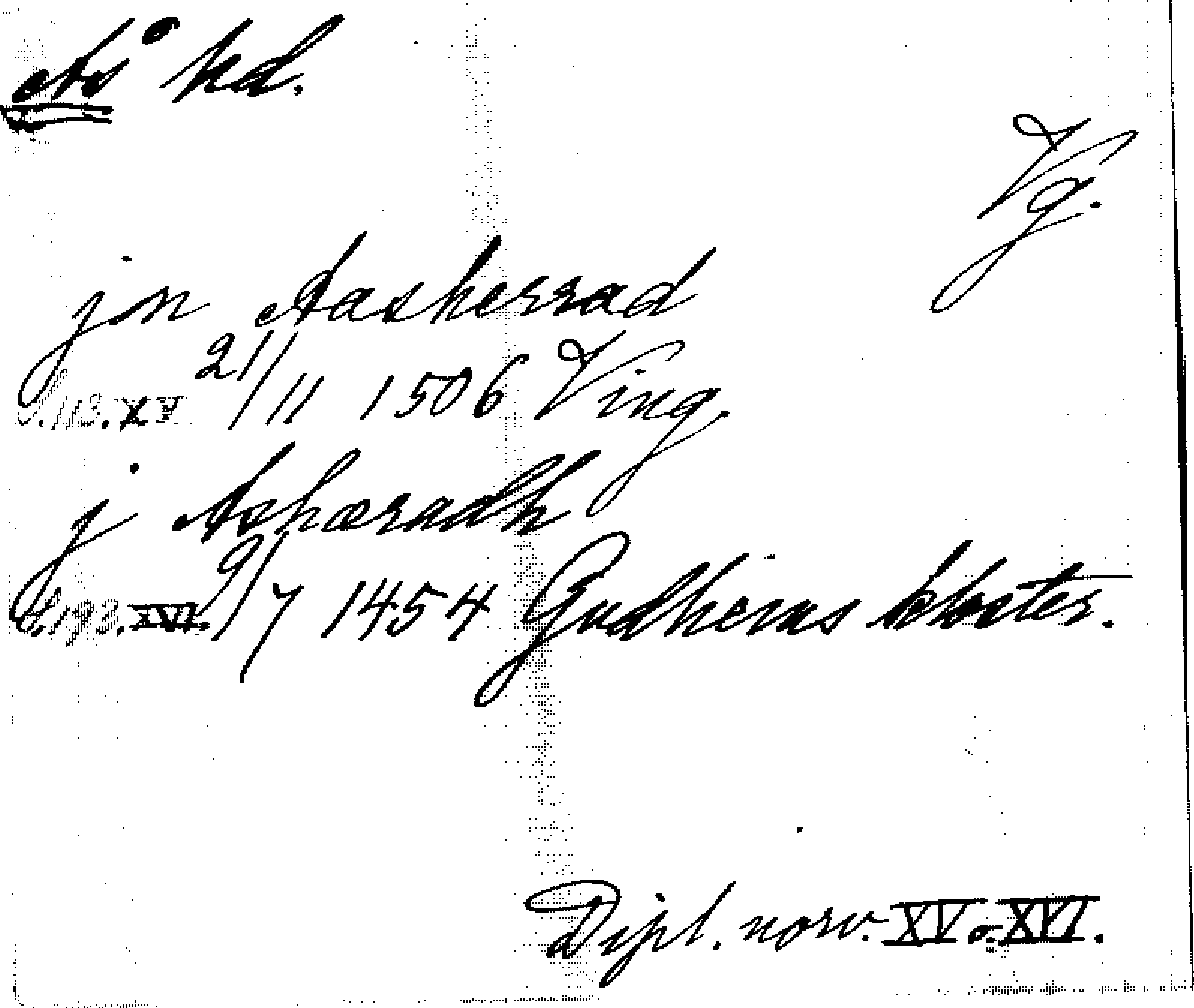 Ås hd.
Vg.
jn Aasherrad
s. 113. XV 21/11 1506 Ving.
j Ashæradh
s. 193. XVI. 9/7 1454 Gudhems kloster.
Dipl. norv. XV o. XVI.